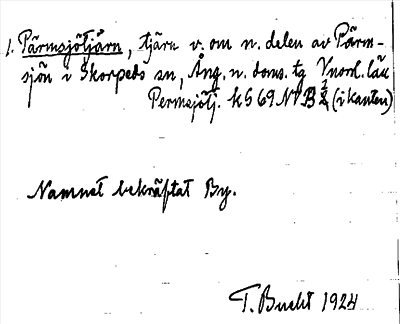 1. Pärmsjötjärn, tjärn v. om n. delen av Pärm-
sjön i Skorpeds sn, Ång. n. doms. tg Vnorl. län
Permsjötj. kS 69 NV B (i kanten)
Namnet bekräftat By.
T. Bucht 1924